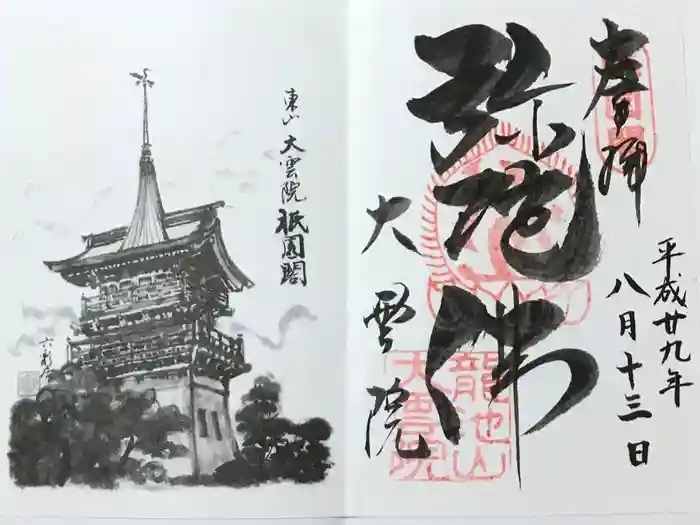 奉拝
平成廿九年
八月十三日
弥陀佛
大雲院
龍池山
大雲院
東山 大雲院 祇園閣